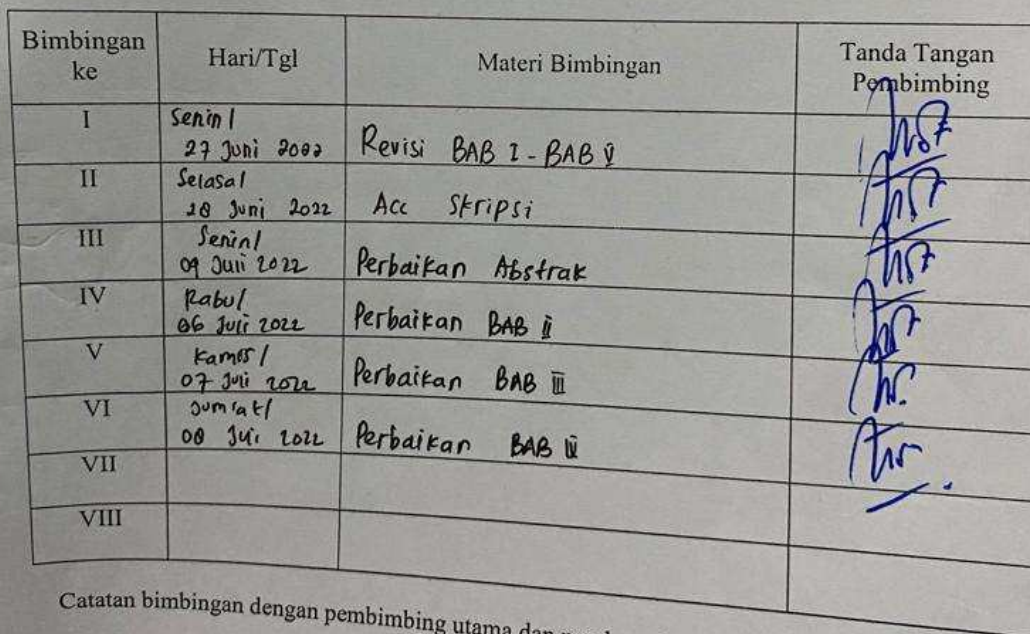 Bimbingan ke
Hari/Tgl
Materi Bimbingan
Tanda Tangan Pembimbing
I
Senin /
27 Juni 2022
Revisi BAB I - BAB V
II
Selasa /
28 Juni 2022
Acc Skripsi
III
Senin /
04 Juli 2022
Perbaikan Abstrak
IV
Rabu /
06 Juli 2022
Perbaikan BAB II
V
Kamis /
07 Juli 2022
Perbaikan BAB III
VI
Jum'at /
08 Juli 2022
Perbaikan BAB IV
VII
VIII
Catatan bimbingan dengan pembimbing utama dan